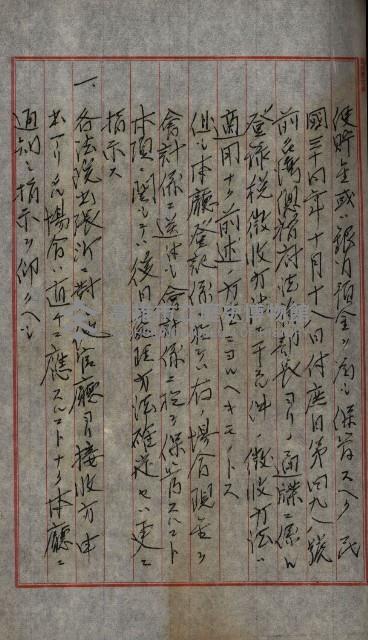 使時金或ハ銀行預金ノ局モ保管スヘク民
國三十四年十月十八日付庶日第四九八號
前台灣總督府法務部長ヨリノ通牒ニ係ル
登録税徴收方法ニ干スル件ノ徴收方法ハ
適用ナク前述ノ方法ニヨルヘキモノトス
但シ本廳登記係ニ於テハ右ノ場合現金ヲ
會計係ニ送付シ會計係ニ於テ保管スルコト
本項ニ関シテハ後日處理方法確定セハ更ニ
指示ス
一、各法院出張所ニ對シ官廳ヨリ接收方申
出アリタル場合ハ直チニ應スルコトナク本廳ニ
通知シ指示ヲ仰クヘシ